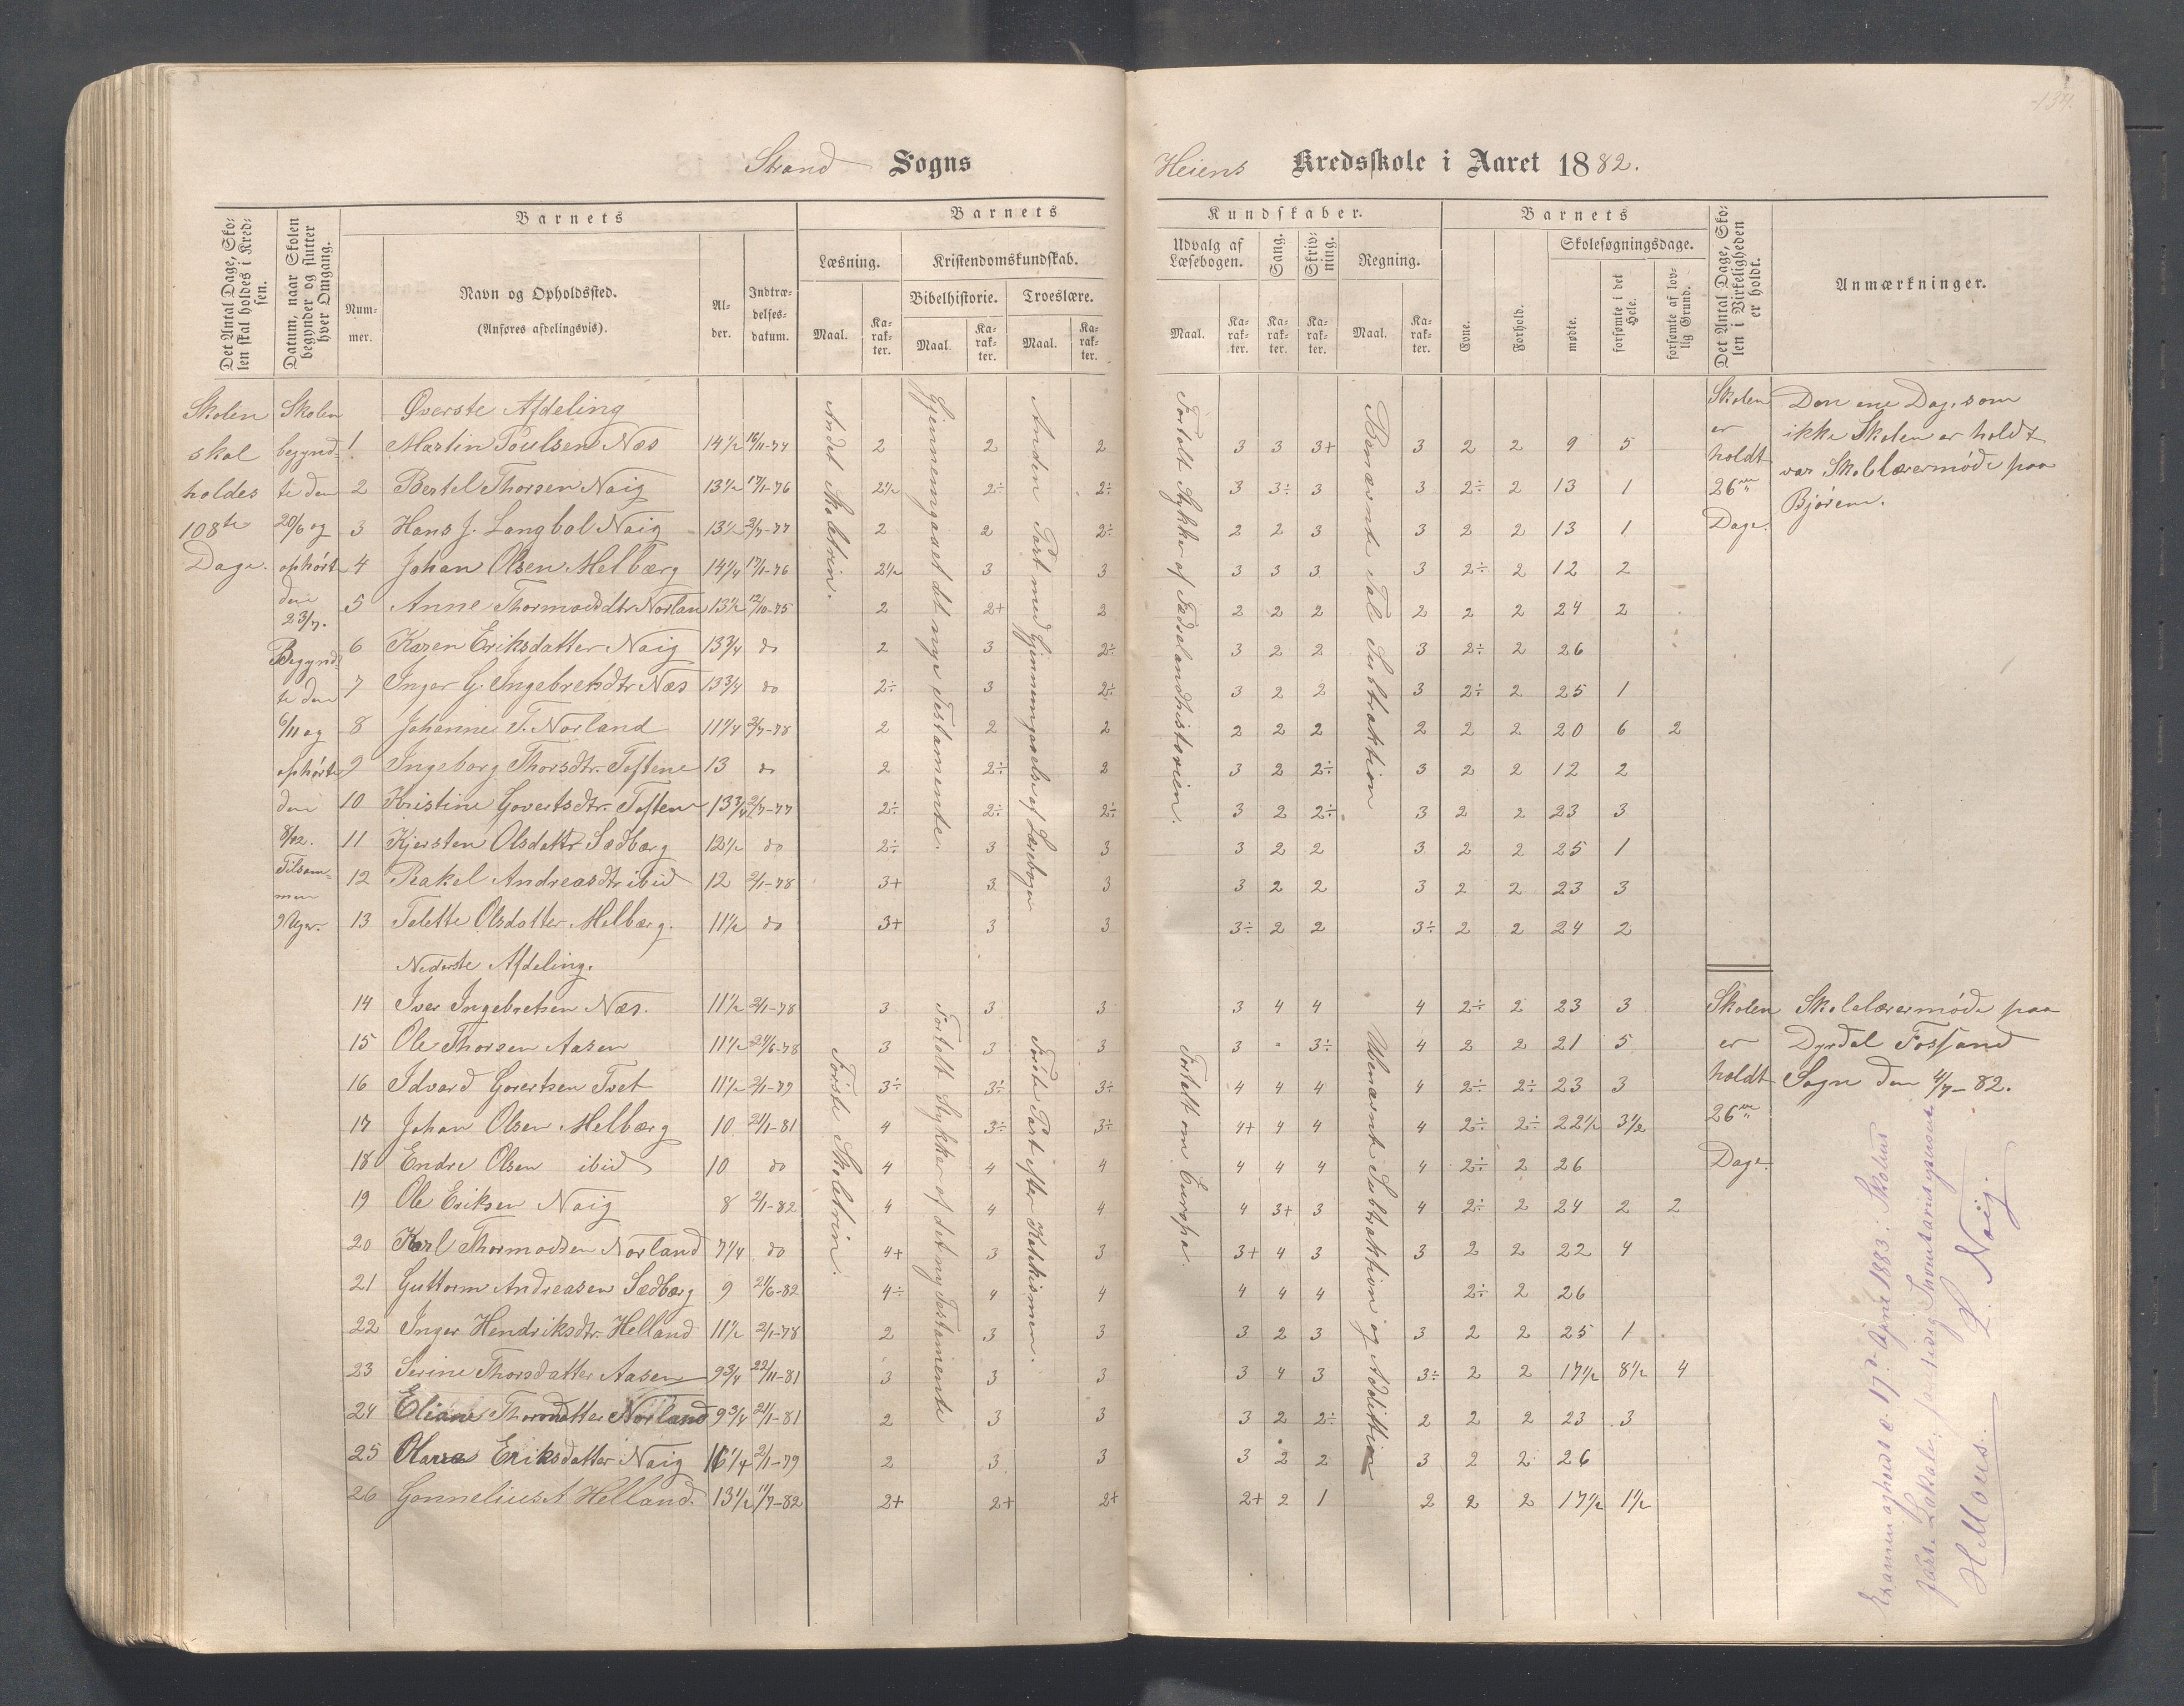 134.
Strand Sogns
Heiens Kredsskole i Aaret 1882.
Det Antal Dage, Skolen skal holdes i Kredsen.
Datum, naar Skolen begynder og slutter hver Omgang.
Barnets
Nummer.
Navn og Opholdssted.
(Anføres afdelingsvis).
Alder.
Indtrædelsesdatum.
Barnets
Læsning.
Maal.
Karakter.
Kristendomskundskab.
Bibelhistorie.
Maal.
Karakter.
Troeslære.
Maal.
Karakter.
Kundskaber.
Udvalg af Læsebogen.
Maal.
Karakter.
Sang.
Karakter.
Skrivning.
Karakter.
Regning.
Maal.
Karakter.
Barnets
Evne.
Forhold.
Skolesøgningsdage.
mødte.
forsømte i det Hele.
forsømte af lovlig Grund.
Det Antal Dage, Skolen i Virkeligheden er holdt.
Anmærkninger.
Skolen
skal
holdes
108te
Dage.
Skolen
begynd-
te den
20/6 og
ophørte
den
23/7.
Begynd-
te den
6/11 og
ophørte
den
8/12.
Tilsam-
men
9 Uger.
Øverste Afdeling
1 Martin Poulsen Næs 14 1/2 16/11-74 2 2 2 3 3 3+ 3 2 2 9 5
2 Bertel Thorsen Naig 13 1/2 17/1-76 2 1/2 2÷ 2÷ 3 3÷ 3 3 2÷ 2 13 1
3 Hans J. Langbol Naig 13 1/2 2/7-77 2 2 2÷ 2 2 3 3 2 2 13 1
4 Johan Olsen Melbærg 14 1/4 17/1-76 2 1/2 3 3 3 3 3 3 2÷ 2 12 2
5 Anne Thormodsdtr Norlan 13 1/2 12/10-75 2 2+ 2 2 2 2 2 2 2 24 2
6 Karen Eriksdatter Naig 13 3/4 do 2 3 2÷ 3 2 2 3 2÷ 2 26
7 Inger G. Ingebretsdtr Næs 13 3/4 do 2÷ 3 2÷ 3 2 2 3 2÷ 2 25 1
8 Johanne T. Norland 11 1/4 2/7-78 2 2 2 2 2 2 2 2 2 20 6 2
9 Ingeborg Thorsdtr. Toftene 13 do 2 2÷ 2 3 2 2÷ 3 2 2 12 2
10 Kristine Govertsdtr. Toften 13 3/4 2/7-77 2÷ 2÷ 2÷ 3 2 2÷ 3 2 2 23 3
11 Kjersten Olsdattr Sædbærg 12 1/2 do 2÷ 3 3 3 2 2 3 2 2 25 1
12 Rakel Andreasdtr ibid 12 2/1-78 3+ 3 3 3 2 2 3 2 2 23 3
13 Talette Olsdatter Melbærg. 11 1/2 do 3+ 3 3 3÷ 2 2 3÷ 2 2 24 2
Nederste Afdeling.
14 Iver Ingebretsen Næs. 11 1/2 2/1-78 3 3 3 3 4 4 4 2÷ 2 23 3
15 Ole Thorsen Aasen 11 1/2 24/6-78 3 3 3 3 " 3÷ 4 2 2 21 5
16 Edvard Govertsen Tvet 11 1/2 2/1-79 3÷ 3÷ 3÷ 4 4 4 4 2÷ 2÷ 23 3
17 Johan Olsen Melbærg 10 21/1-81 4 3÷ 3÷ 4+ 4 4 4 2÷ 2÷ 22 1/2 3 1/2
18 Endre Olsen ibid 10 do 4 4 4 4 4 4 4 2÷ 2 26
19 Ole Eriksen Naig 8 2/1-82 4 4 4 4 3+ 3 4 2÷ 2 24 2 2
20 Karl Thormodsen Norland 7 1/4 do 4+ 3 3 3+ 4 3 3 2 2 22 4
21 Guttorm Andreasen Sædbærg 9 21/6-82 4÷ 4 4 4 4 4 2÷ 2 26
22 Inger Hendriksdtr. Helland 11 1/2 2/1-78 2 3 3 3 2 3 3 2 2 25 1
23 Serine Thorsdatter Aasen 9 3/4 22/11-81 3 3 3 3 4 3 3÷ 2 2 17 1/2 8 1/2 4
24 Eliane Thormodtter Norland 9 3/4 21/1-81 2 3 3 3 2 2÷ 2 2 2 23 3
25 Eriksdatter Naig 2/1-79 2 3 3 3 2 2 3 2 2 26
26 Gonnelius A Helland. 13 1/2 11/7-82 2+ 2+ 2+ 2+ 2 1 2 2 2 17 1/2 1 1/2
Andet Skoletrin.
Gjennemgaaet det nye Testamente.
Anden Part med Gjennemgaaelse af Lærebogen
Fortalt Stykker af Fædrelandshistorien.
Benævnte Tal Subtraktion
Første Skoletrin.
Fortalt Stykker af det ny Testamente
Første Part efter Katekismen.
Fortalt om Europa.
Ubenævnt Subtraktion og Addition
Skolen
er
holdt
26
Dage.
Den ene Dag, som
ikke Skolen er holdt
var Skolelærermøde paa
Bjøreim.
Skolen
er
holdt
26
Dage.
Skolelærermøde paa
Dyrdal Fossand
Sogn den 4/7-82.
17d. April 1883 i Skolens
L. Naig.
H. Mous.